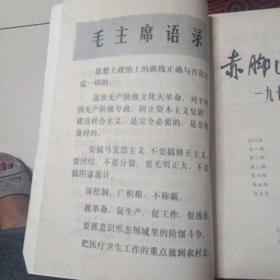 毛主席语录
思想上政治上的路线正确与否是决
定一切的。
这次无产阶级文化大革命，对于巩
固无产阶级专政，防止资本主义复辟，
建设社会主义，是完全必要的，是非常
及时的。
要搞马克思主义，不要搞修正主义，
要团结，不要分裂，要光明正大，不要
搞阴谋诡计。
深挖洞，广积粮，不称霸。
抓革命，促生产，促工作，促战备。
要抓意识形态领域里的阶级斗争。
把医疗卫生工作的重点放到农村去
赤脚
一九七